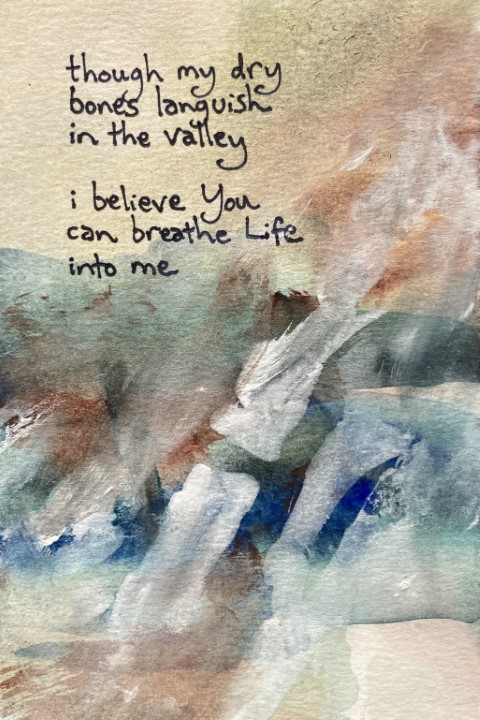 though my dry
bones languish
in the valley
i believe You
can breathe Life
into me